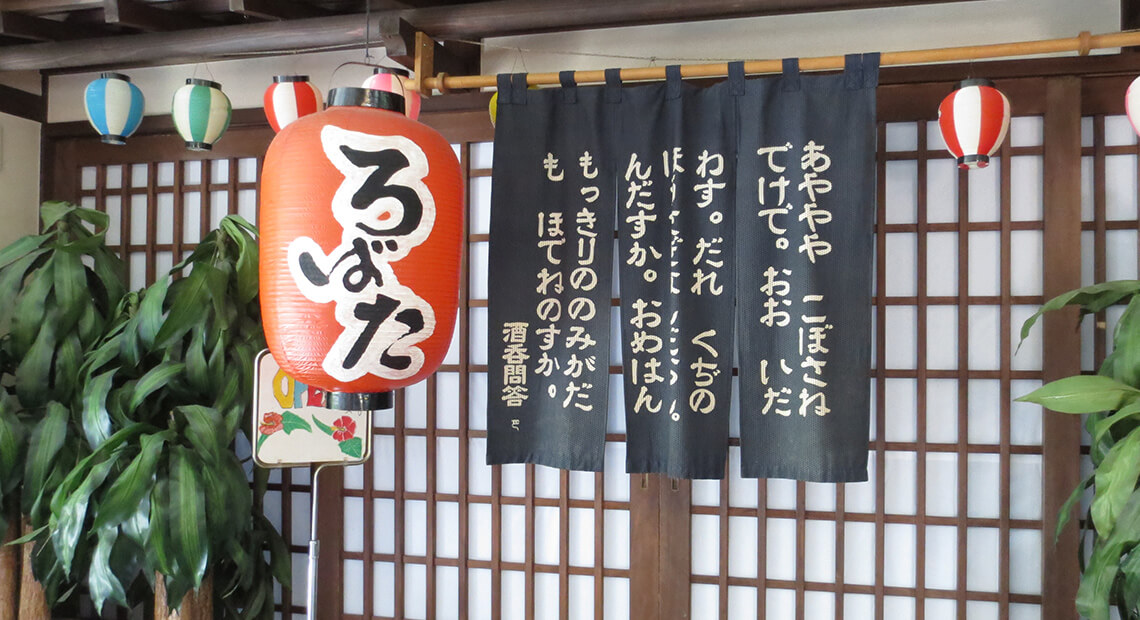 ろばた
あややや こぼさね
でけで。おお いだ
わす。だれ くぢの
んだすか。おめはん
もっきりののみがだ
も ほでねのすか。
酒呑問答